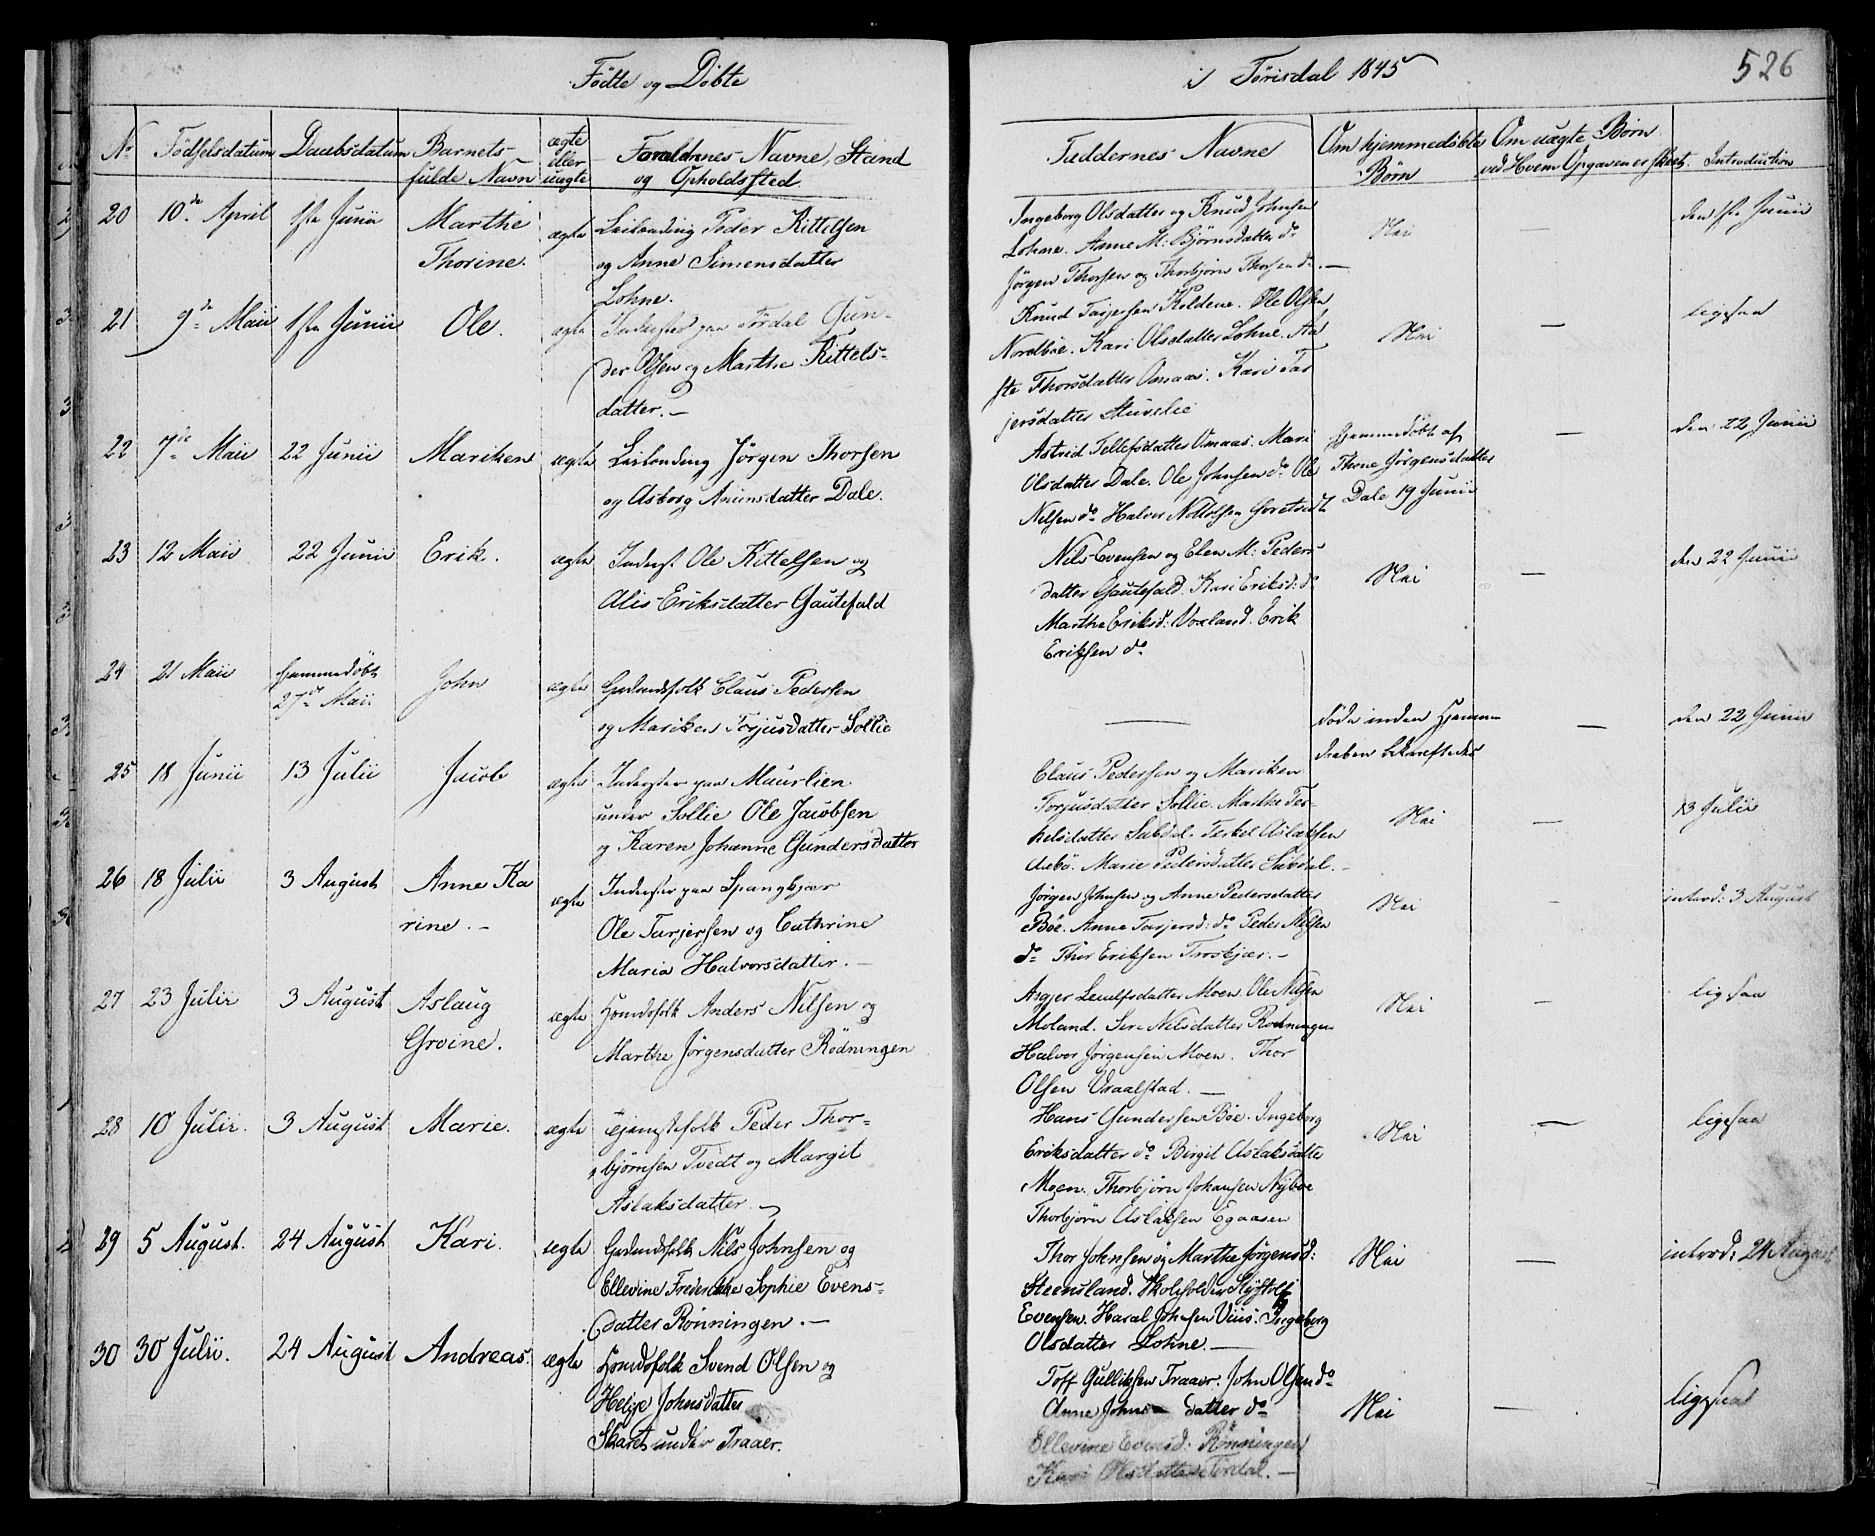 Födte og Döbte
N° Födselsdatum Daabsdatum Barnets fulde Navn ægte eller uægte Forældrenes Navne, Stand og Opholdssted.
20 10de April 1ste Junii Marthe ægte Leilending Peder Kittelsen
Thorine. og Anne Simensdatter
Lohne.
21 9de Maii 1ste Junii Ole. ægte Inderster paa Tördal Gun-
der Olsen og Marthe Kittels-
datter.-
22 7de Maii 22 Junii Mariken ægte Leilending Jörgen Thorsen
og Asborg Dale.
23 12 Maii 22 Junii Erik. ægte Inderst Ole Kittelsen og
Alis Eriksdatter Gautefald
24 21 Maii hjemmedöbt John ægte Gaardmandsfolk Claus Pedersen
27de Maii. og Mariken Torjusdatter Sollie
25 18 Junii 13 Julii Jacob ægte Inderster paa Maurlien
under Sollie Ole Jacobsen
og Karen Johanne Gundersdatter
26 18 Julii 3 August Anne Ka ægte Inderster paa Spangkjær
rine.- Ole Tarjersen og Cathrine
Maria Halvorsdatter.-
27 23 Julii 3 August Aslaug ægte Huusmandsfolk Anders Nilsen og
Groine. Marthe Jörgensdatter Rödningen
28 10 Julii. 3 August Marie. ægte Tjenestefolk Peder Thor-
björnsen Tvedt og Margit
Aslaksdatter.-
29 5 August. 24 August Kari. ægte Nils Johnsen og
Ellevine Frederikke Sophie Evens-
datter Rönningen.-
30 30 Julii. 24 August Andreas. ægte Svend Olsen og
Helge Johnsdatter
Skaret under Traaer.
i Törisdal 1845
526
Faddernes Navne Om hjemmedöbte Börn Om uægte Börn ved Hvem Opgaven er skeet. Introduction
Ingeborg Olsdatter og Knud Johnsen Nei — den 1ste Junii
Lohne. Anne M: Björnsdatter d°
Jörgen Thorsen og Thorbjörn Thorsen d°.—
Knud Tarjersen Keldene. Ole Olsen ligesaa
Nordböe. Kari Olsdatter Lohne. Aa Nei —
ste Thorsdatter Omaas. Kari Tar
jersdatter
Astrid Tellefsdatter Omaas. Mari hjemmedöbt af — den 22 Junii
Olsdatter Dale. Ole Johnsen d° Ole Thone Jörgensdatter
Nilsen d° Halvor Dale 19 Junii
Nils Evensen og Elen M: Peders- den 22 Junii
datter Gautefald. Kari Eriksd: d° Nei —
Marthe Eriksd: Voxland. Erik
Eriksen d°
— döde inden Hjemme — den 22 Junii
daaben bekræftedes
Claus Pedersen og Mariken
Torjusdatter Sollie. Marthe Ter- 13 Julii
kelsdatter Terkel Aslaksen Nei —
Marie Pedersdatter
Jörgen Johnsen og Anne Pedersdatter Nei - introd: 3 August
Böe. Anne Tarjersd: d° Peder Nilsen
d° Thor Eriksen
Asgjer Leulfsdatter Moen. Ole Nilsen Nei — ligesaa
Moland. Siri Nilsdatter Rodningen
Halvor Jörgensen Moen. Thor
Olsen Vraalstad.—
Hans Gundersen Böe. Ingeborg Nei — ligesaa
Eriksdatter d° Birgit Aslaksdatter
Moen. Thorbjörn Johansen Nyböe
Thorbjörn Aslaksen Egaasen
Thor Johnsen og Marthe Jörgensd: Nei — introd: 24 August
Steensland. Skoleholder
Evensen. Haral Johnsen Ingeborg
Olsdatter Lohne.—
Toff Gulliksen Traaer. John Olsen d° ligesaa
Anne Johns- datter d° Nei —
Ellevine Evensd: Rönningen
Kari Olsdatter Tördal.—